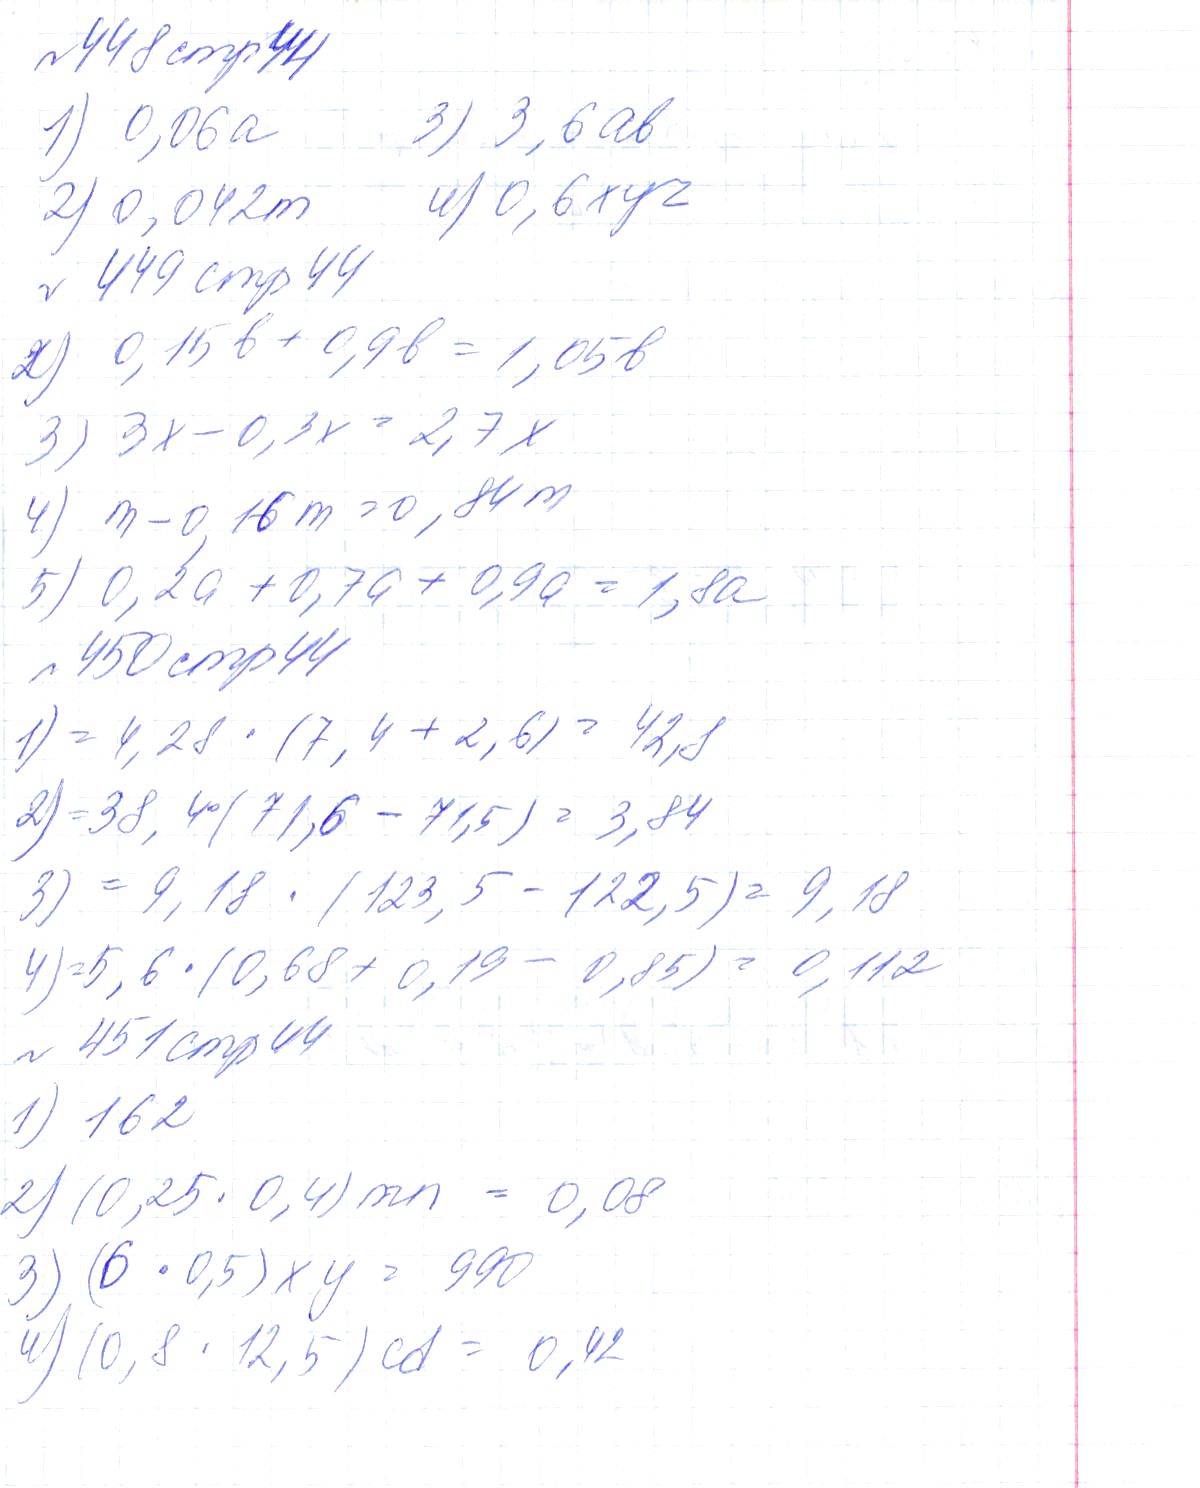 №448 стр 44
1) 0,06a 3) 3,6ab
2) 0,042m 4) 0,6xyz
№ 449 стр 44
2) 0,15b + 0,9b = 1,05b
3) 3x - 0,3x = 2,7x
4) m - 0,16m = 0,84m
5) 0,2a + 0,7a + 0,9a = 1,8a
№450 стр 44
1) = 4,28 · (7,4 + 2,6) = 42,8
2) = 38,4 · (71,6 - 71,5) = 3,84
3) = 9,18 · (123,5 - 122,5) = 9,18
4) = 5,6 · (0,68 + 0,19 - 0,85) = 0,112
№ 451 стр 44
1) 162
2) (0,25 · 0,4) mn = 0,08
3) (6 · 0,5) xy = 990
4) (0,8 · 12,5) cd = 0,42